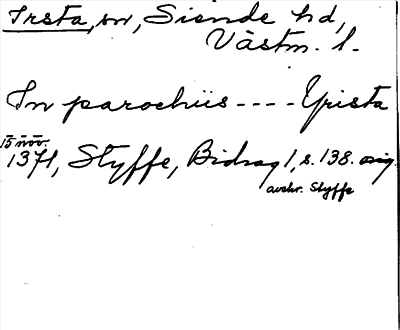 Irsta, sn, Siende hd,
Västm. l.
In parochiis ---- Yrista
15 nov.
1371, Styffe, Bidrag 1, s. 138. orig.
avskr. Styffe